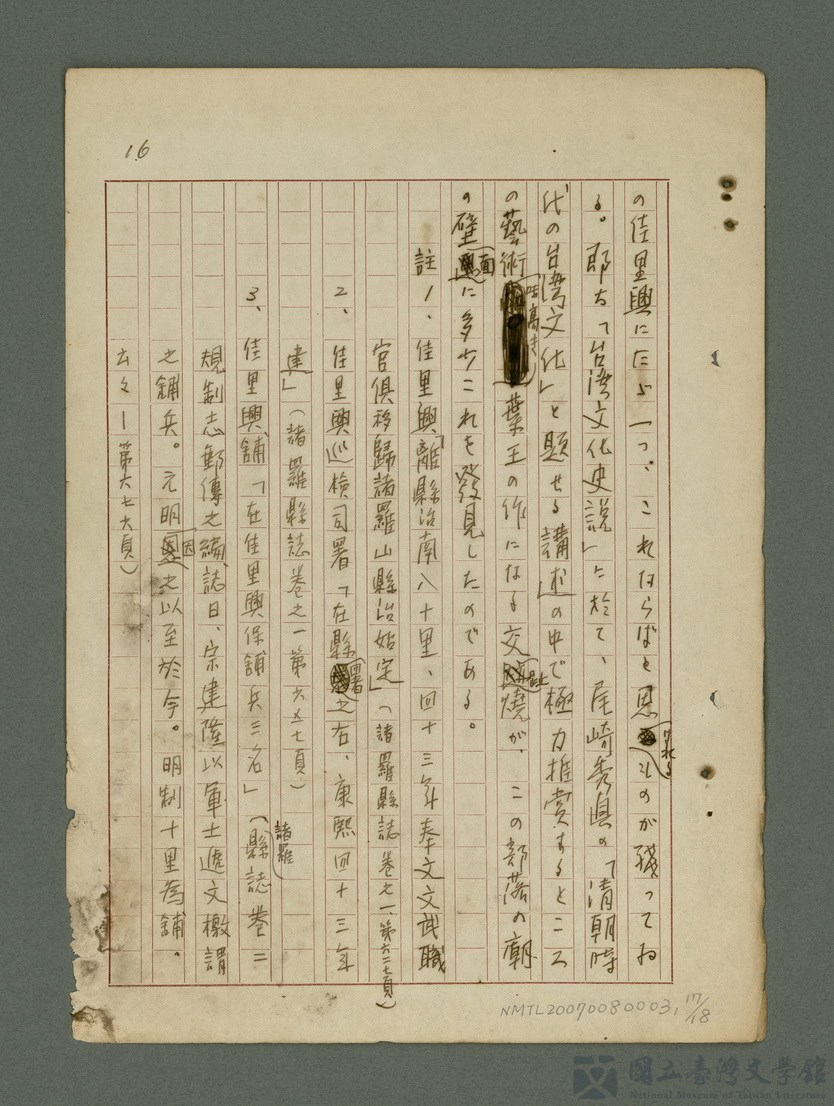 16
の佳里興にたゞ一つ、これならばと思はれるものが残ってゐ
る。即ち「台湾文化史説」に於て、尾崎秀眞の「清朝時
代の台湾文化」と題せる講述の中で極力推賞するところ
の藝術葉王の作になる交趾燒が、この部落の廟
の壁面に多少これを發見したのである。
註1、佳里興「離縣治南八十里、四十三年奉文文武職
官俱移歸諸羅山縣治始定」(諸羅縣誌卷之一、第六二七頁)
2、佳里興巡檢司署「在縣署之右、康熙四十三年
建」(諸羅縣誌卷之一第六五七頁)
3、佳里興舖「在佳里興保舖兵三名」(諸羅縣誌卷二
規制志郵傳之續誌曰、宋建隆以軍士遞文檄謂
之舖兵。元明因之以至於今。明制十里為舖。
云々—第六七六頁)
NMTL20070080003, 17/18
國立臺灣文學館
National Museum of Taiwan Literature